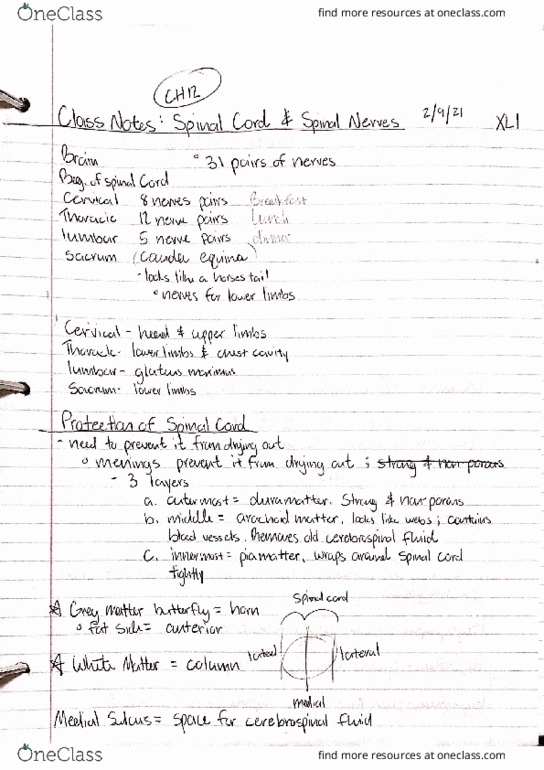 OneClass
find more resources at oneclass.com
CH12
Class Notes: Spinal Cord & Spinal Nerves 2/9/21 XL1
Brain ° 31 pairs of nerves
Beg. of spinal Cord
Cervical 8 nerves pairs Breakfast
Thoracic 12 nerve pairs Lunch
lumbar 5 nerve pairs dinner
Sacrum (cauda equina)
- looks like a horses tail
° nerves for lower limbs
Cervical - head & upper limbs
Thoracic - lower limbs & chest cavity
lumbar - gluteus maximus
Sacrum - lower limbs
Protection of Spinal Cord
- need to prevent it from drying out
° menings prevent it from drying out ; strong & non porous
- 3 layers
a. outermost = duramatter. Strong & non porous
b. middle = arachnoid matter, looks like webs; contains
blood vessels. Removes old cerebrospinal fluid
c. innermost = piamatter, wraps around spinal cord
tightly
Spinal cord
Grey matter butterfly = horn
° fat side = anterior
White Matter = column
lateral lateral
medial
Medial Sulcus = space for cerebrospinal fluid
OneClass
find more resources at oneclass.com